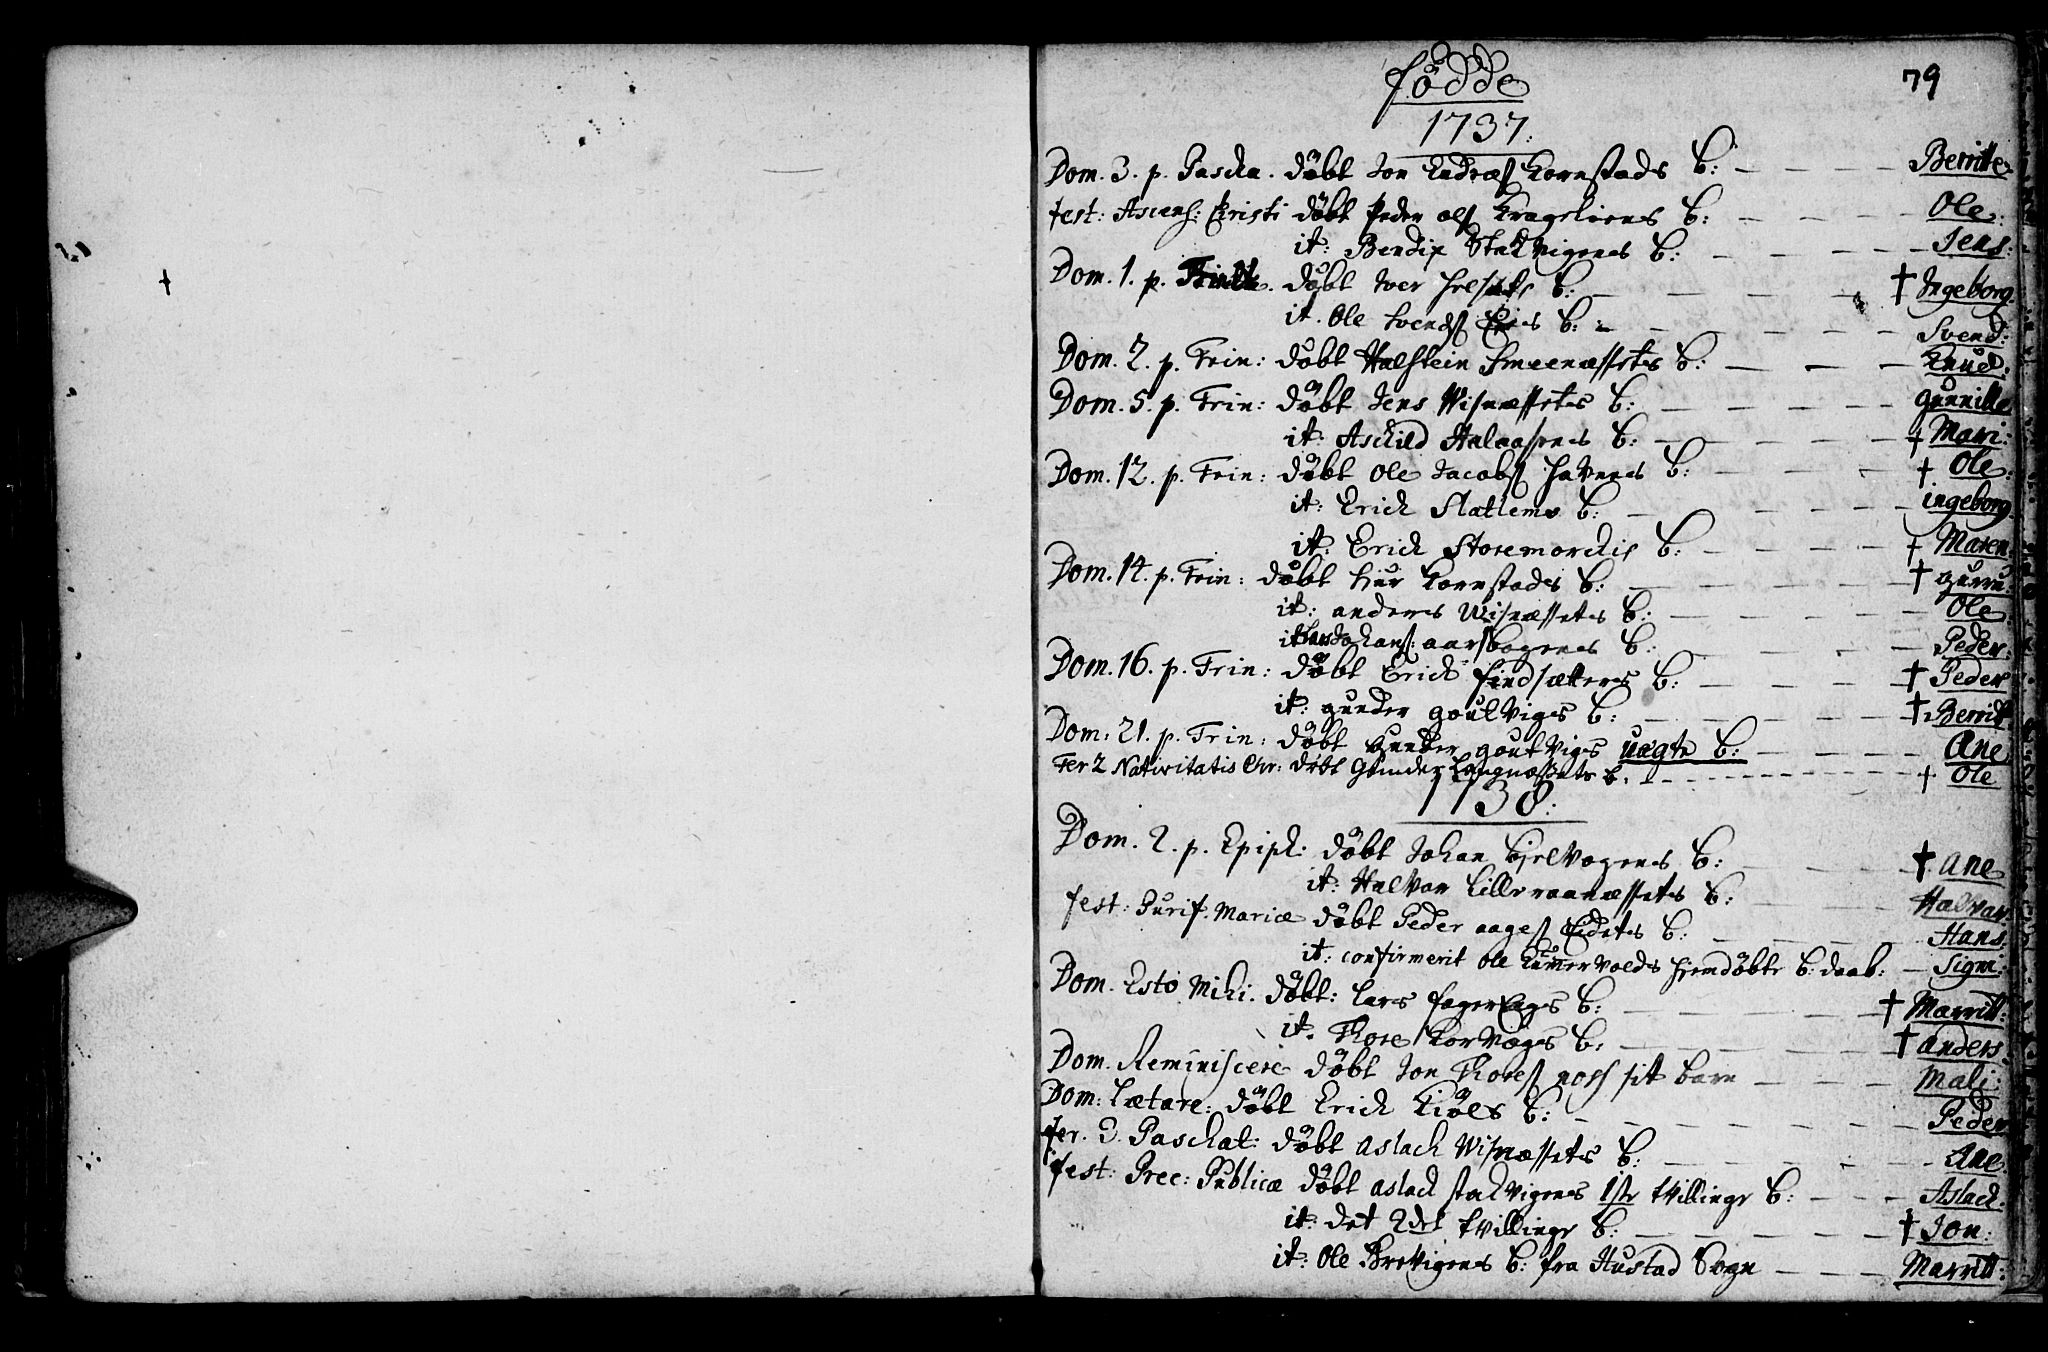 79
fødde
1737.
Dom. 3. p. Pascha. døbt Jon Endres Kornstads B: — — — — Berritte
fest: Ascens: Christi døbt Peder ols Krageliens B: — — — — Ole.
it: Bendix Stachvigens B: — — — — Jens:
Dom. 1. p. døbt Iver B: — — — — † Ingeborg.
it. Ole Svends Eies B: — — — — Svend:
Dom. 2. p. Trin: døbt Halstein Smeenæssets B: — — — Knud:
Dom. 5. p. Trin: døbt Jens Wisnæssets B: — — — — gunnille
it: Aschild Halaasens B: — — — — † Mari:
Dom. 12. p. Trin: døbt Ole Jacobs havnes B: — — — — † Ole:
it: Erich Slatlems B: — — — — ingeborg.
it: Erich Storemorchis B: — — — — † Maren.
Dom. 14. p. Trin: døbt Kornstads B: — — — — † gurru:
it: anders Wisnæssets B: — — — — Ole
it: Johans: aarsbogens B: — — — — Peder:
Dom. 16. p. Trin: døbt Erich findsætters B: — — — — † Peder
it: gunder goulvigs B: — — — — † Berrit
Dom: 21. p. Trin: døbt gunder goulvigs uægte B: — — — — Ane
Fer 2 Nativitatis Chr: døbt Gunder Langnæssets B: - - - - † Ole
1738:
Dom. 2. p. Epiph: døbt Johan Kjelvogens B: — — — — † Ane
it: Halvar Lilleraanæssets B: — — — — Halvar.
fest: Purif. Mariæ døbt Peder aages Eidets B: — — — — Hans.
it: confirmerit Ole Kummervolds hiemdøbte B: daab: — Signi:
Dom. Esto Mihi. døbt: Lars B: — — — — † Marritt:
it. Thore Korvogs B: — — — — † anders.
Dom. Reminiscere døbt Jon Thores noss sit barn — — — — Mali:
Dom: Lætare: døbt Erich Kiøls B: — — — — Peder
fer. 3. Paschat: døbt aslach Wisnæssets B: — — — — Ane.
fest: Prec: Publicæ døbt aslach stachvigens 1ste tvillinge B: — — — Aslach:
it: det 2det tvillinge B: — — — — † Jon:
it: Ole Brevigens B: fra Hustad Sogn — — — — Marritt: